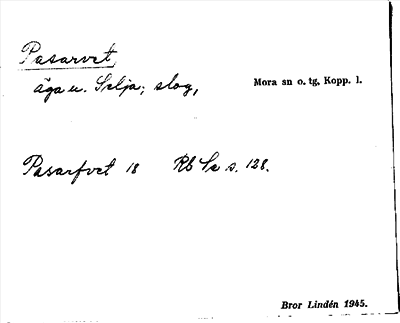 Pasarvet,
äga u. Selja; slog, Mora sn o. tg, Kopp. l.
Pasarfvet 18 Rb Se s. 128.
Bror Lindén 1945.